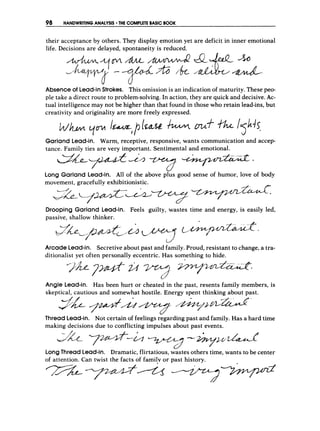 98 HANDWRITING ANALYSIS - THE COMPLETE BASIC BOOK
their acceptance by others. They display emotion yet are deficit in inner emotional
life. Decisions are delayed, spontaneity is reduced.
when you are around I feel so
happy - glad to be alive and
Absence of Lead-in Strokes. This omission is an indication of maturity. These peo-
ple take a direct route to problem-solving. In action, they are quick and decisive. Ac-
tual intelligence may not be higher than that found in those who retain lead-ins, but
creativity and originality are more freely expressed.
When you leave, please turn out the lights
Garland Lead-in. Warm, receptive, responsive, wants communication and accep-
tance. Family ties are very important. Sentimental and emotional.
The past is very important.
Long Garland Lead-in. All of the above plus good sense of humor, love of body
movement, gracefully exhibitionistic.
The past is very important.
Drooping Garland Lead-in. Feels guilty, wastes time and energy, is easily led,
passive, shallow thinker.
The past is very important.
Arcade Lead-in. Secretive about past and family. Proud, resistant to change, a tra-
ditionalist yet often personally eccentric. Has something to hide.
The past is very important.
Angle Lead-in. Has been hurt or cheated in the past, resents family members, is
skeptical, cautious and somewhat hostile. Energy spent thinking about past.
The past is very important.
Thread Lead-in. Not certain of feelings regarding past and family. Has a hard time
making decisions due to conflicting impulses about past events.
The past is very important
Long Thread Lead-in. Dramatic, flirtatious, wastes others time, wants to be center
of attention. Can twist the facts of family or past history.
The past is very import